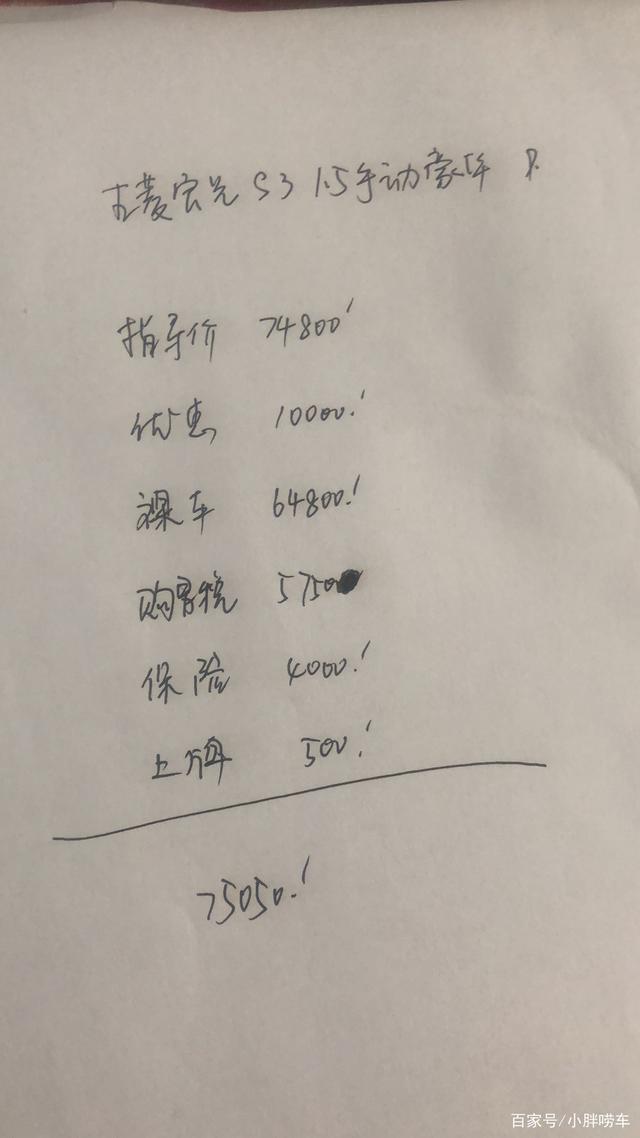 五菱宏光 S3 1.5手动豪华
指导价 74800!
优惠 10000.!
裸车 64800.!
购置税 5750
保险 4000.!
上牌 500.!
75050.!
百家号/小胖唠车